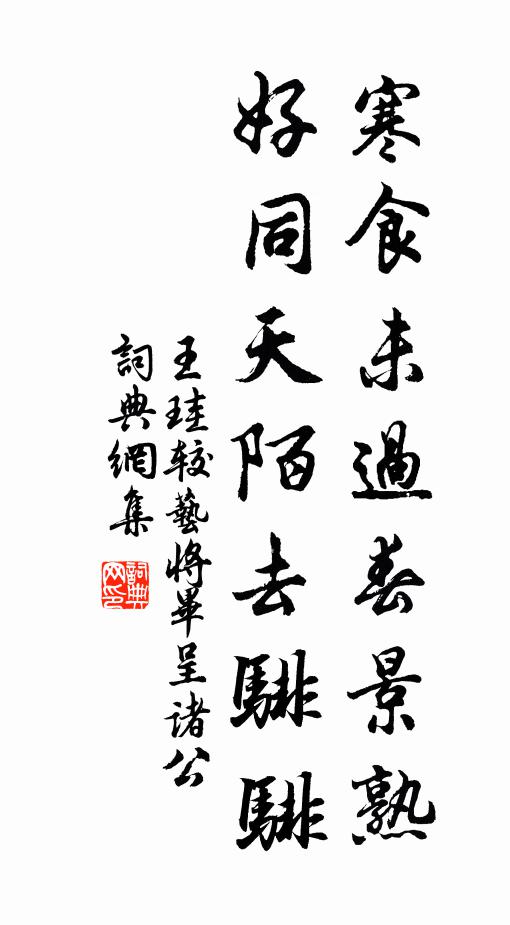 寒食未過春景熟
好同天陌去騑騑
王珪较藝將畢呈诸公
詞典網集
詞典网印